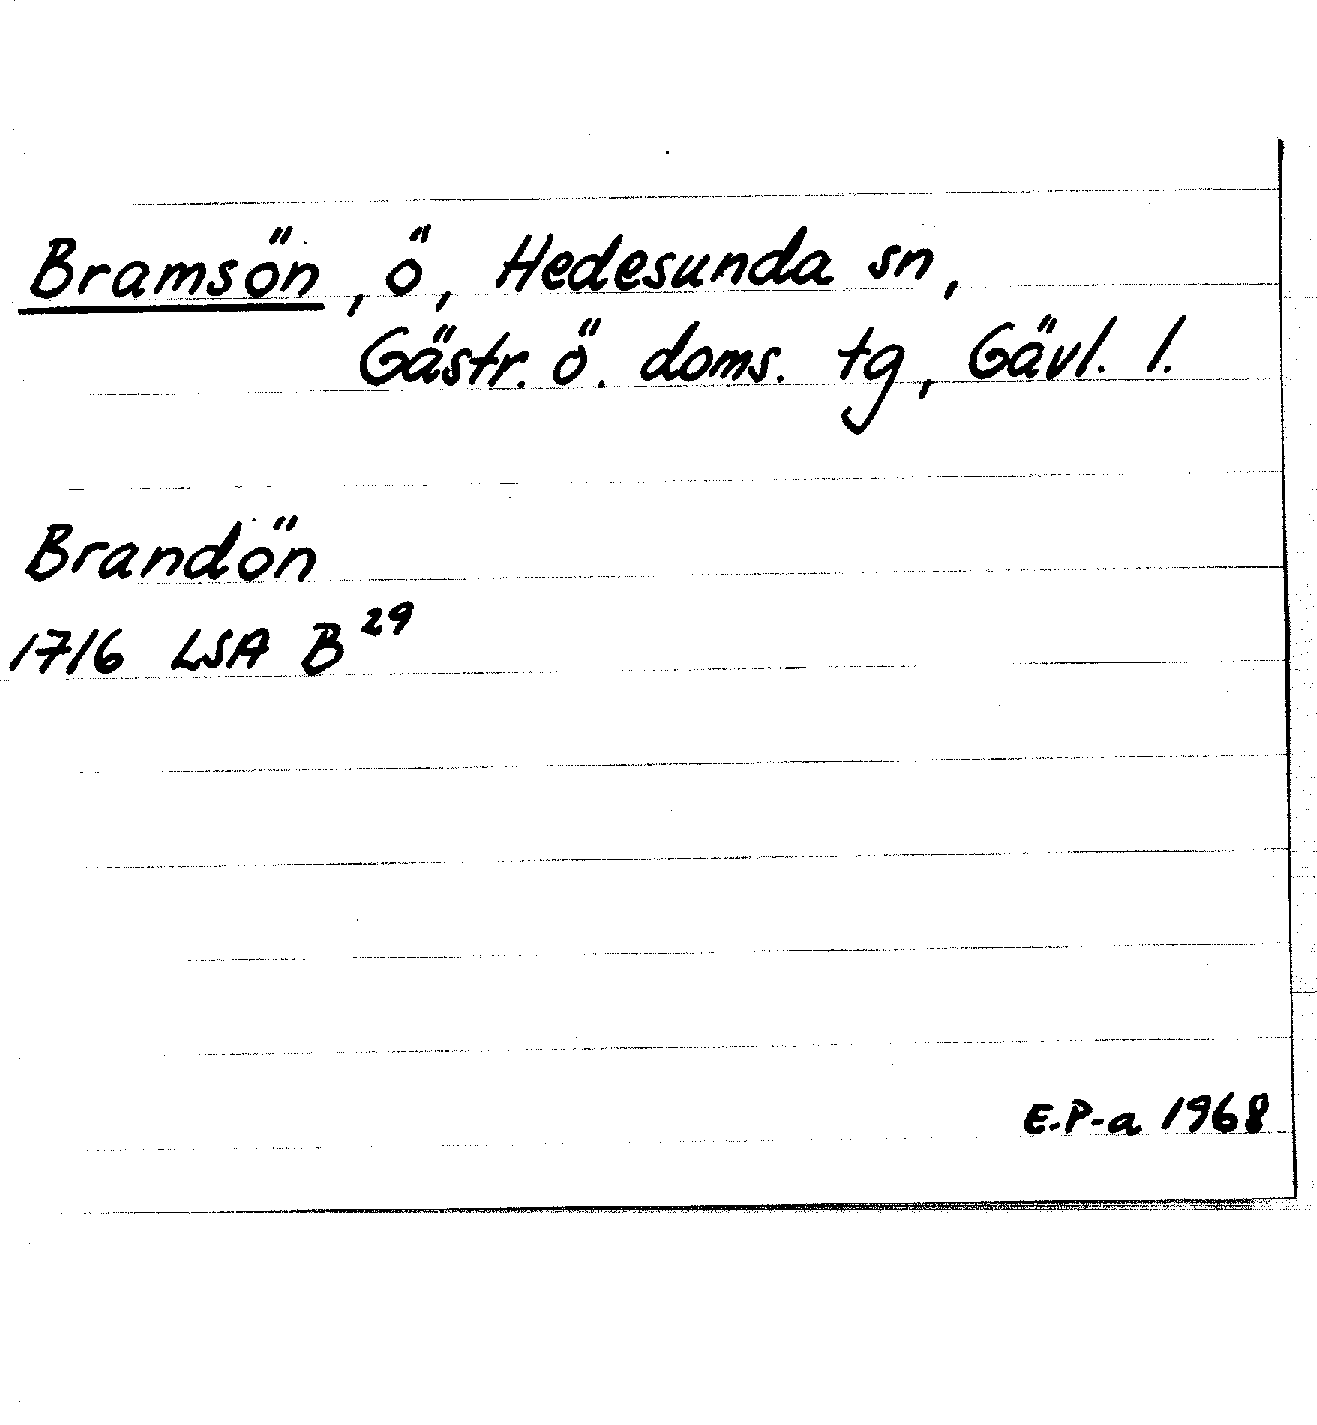 Bramsön, ö, Hedesunda sn,
Gästr. ö. doms. tg, Gävl. l.
Brandön
1716 LSA B 29
E.P-a 1968